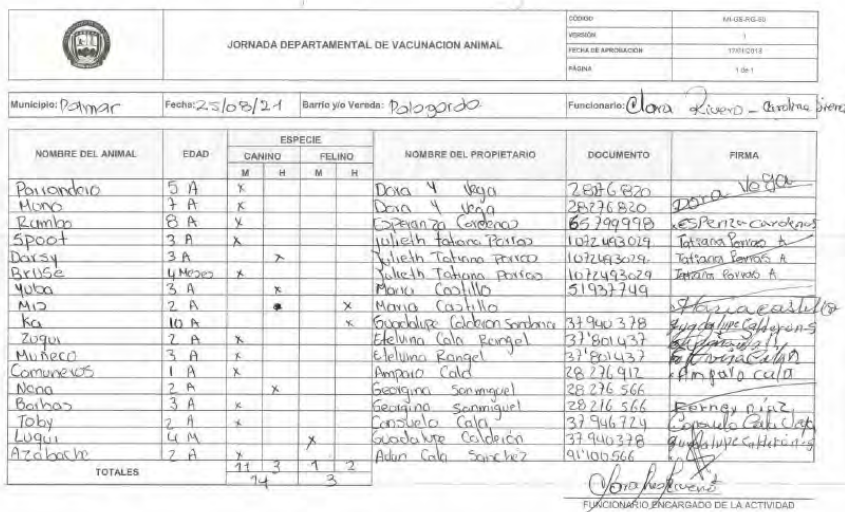 CÓDIGO MI-GS-RG-50
JORNADA DEPARTAMENTAL DE VACUNACION ANIMAL
VERSIÓN 1
FECHA DE APROBACIÓN
PÁGINA 1 de 1
Municipio: Palmar Fecha: 25/08/21 Barrio y/o Vereda: Palogordo Funcionario: Clara Rivero - Carolina
ESPECIE
NOMBRE DEL ANIMAL EDAD CANINO FELINO NOMBRE DEL PROPIETARIO DOCUMENTO FIRMA
M H M H
Parrandero 5 A x Dora Y Vega 28276820 Dora Vega
Mono 7 A x Dora Y Vega 28276820
Rambo 8 A x Esperanza Cardenas 65799998 Esperiza cardenas
Spoot 3 A x Julieth Tatiana Porras 1072493029 Tatiana Porras A
Darsy 3 A x Julieth Tatiana Porras 1072493029 Tatiana Porras A
Bruse 4 Meses x Julieth Tatiana Porras 1072493029 Tatiana Porras A
Yuba 3 A x Maria Castillo 51937749
Mia 2 A x Maria Castillo Maria castillo
Ka 10 A x Guadalupe Calderon Sandona 37940378 guadalupe Calderon S
Zuqui 2 A x Etelvina Cala Rangel 37'801437
Muñeco 3 A x Etelvina Rangel 37'801437
Comuneros 1 A x Amparo Cala 28276912 Amparo cala
Nena 2 A x Georgina Sanmiguel 28276566
Barbas 3 A x Georgina Sanmiguel 28216566 Ferney
Toby 2 A x Consuelo Cala 37946724 Consuelo Cala
Luqui 4 M x Guadalupe Calderón 37940378 guadalupe calderon S
Azabache 2 A x Adan Cala Sanchez 91'100566
TOTALES 11 3 1 2
14 3
FUNCIONARIO ENCARGADO DE LA ACTIVIDAD